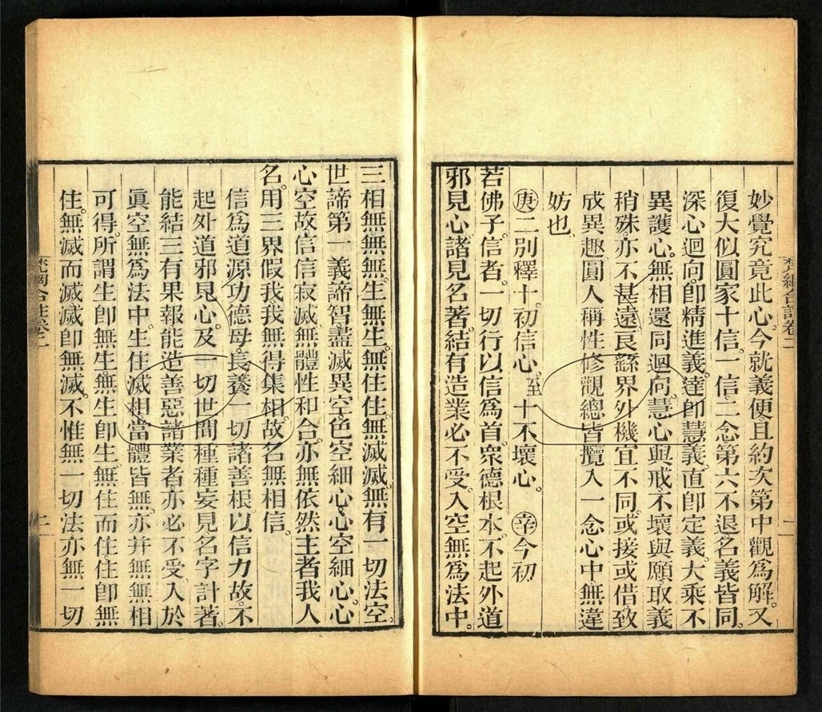 妙覺究竟此心。今就義便且約次第中觀爲解。又
復大似圓家十信。一信二念第六不退名義皆同。
深心迴向。即精進義。達即慧義。直即定義。大乘不
異護心。無相還同迴向。慧心與戒不壞與願。取義
稍殊亦不甚遠。良繇界外機宜不同。或接或借致
成異趣。圓人稱性修觀。總皆攬入一念心中無違
妨也。
庚二別釋十初信心。至十不壞心。辛今初
若佛子。信者。一切行以信爲首。衆德根本。不起外道
邪見心。諸見名著。結有造業必不受。入空無爲法中。
三相無無無生。無生無住。住無滅滅。無有一切法空。
世諦第一義諦智盡滅異空色空細心心空細心。心
心空故。信信寂滅無體性和合。亦無依然主者我人
名。用三界假我我無得集相。故名無相信。
信爲道源功德母。長養一切諸善根。以信力故。不
起外道邪見心。及一切世間種種妄見名字計著。
能結三有果報。能造善惡諸業者。亦必不受。入於
眞空無爲法中。生住滅相當體皆無。亦并無無相
可得。所謂生即無生。無生即生。無住而住。住即無
住。無滅而滅。滅即無滅。不惟無一切法。亦無一切
梵網合註卷二
梵網合註卷二
二